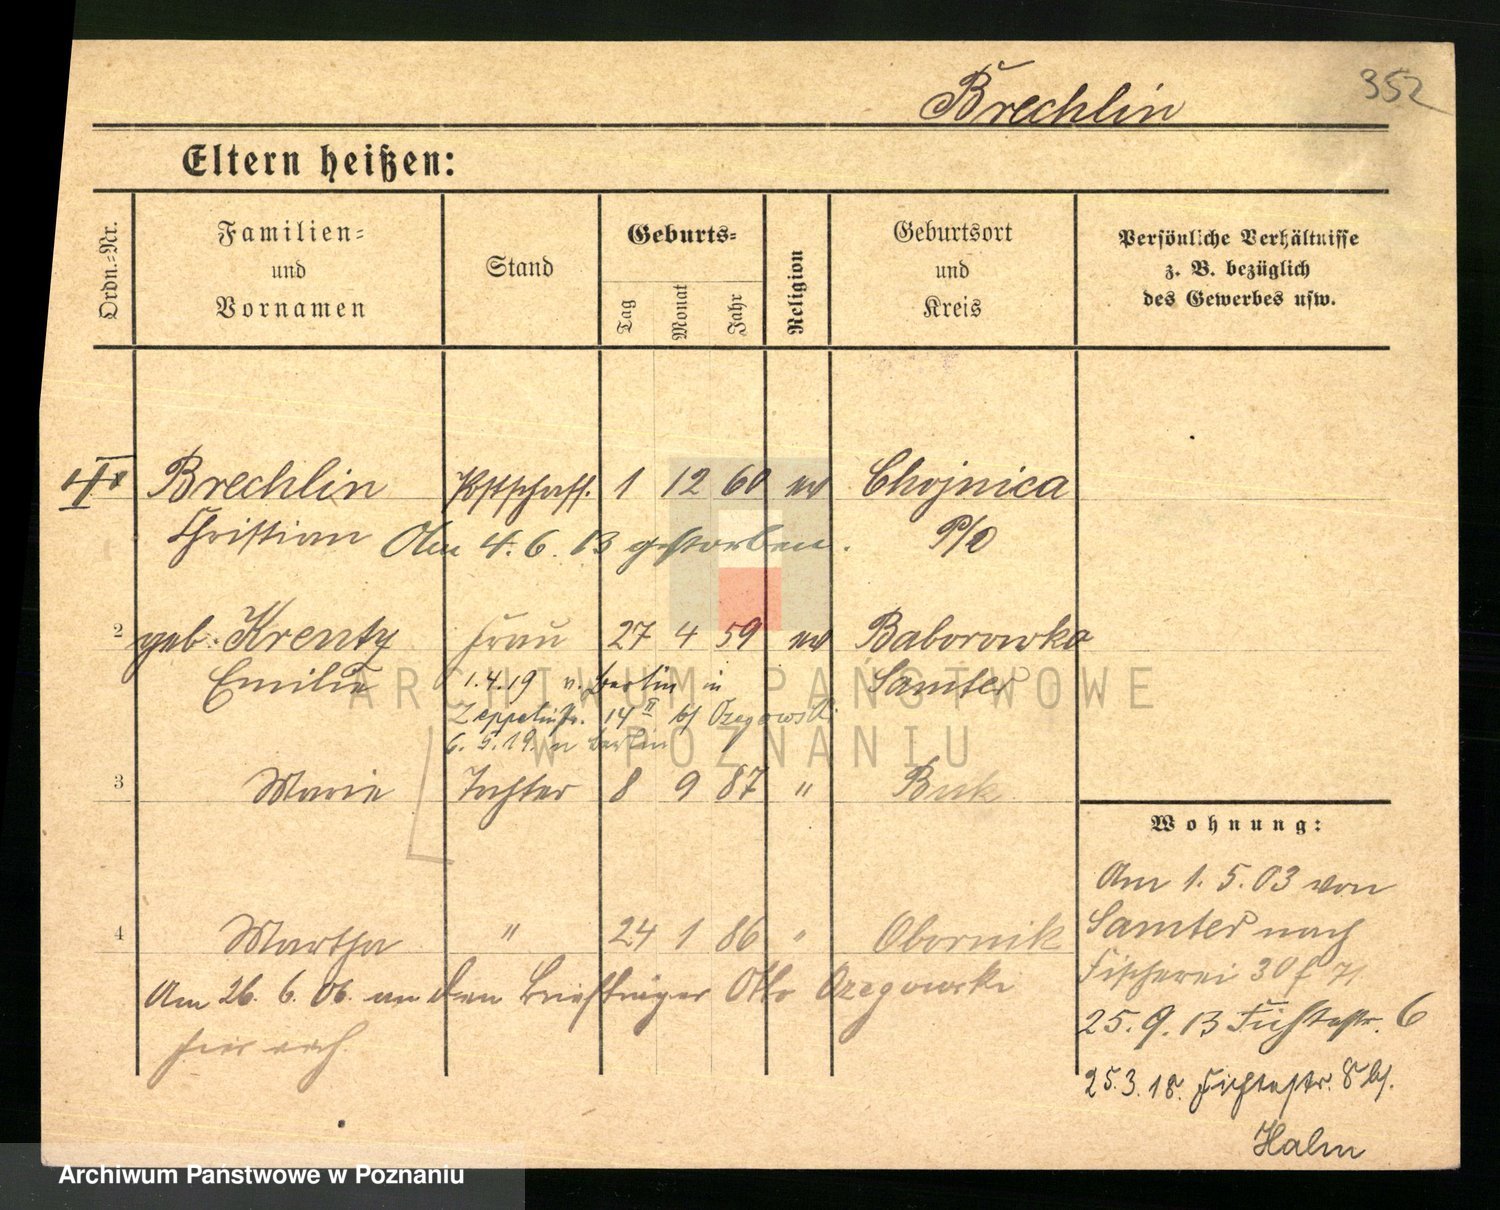 352
Brechlin
Eltern heißen:
Ordn.-Nr.
Familien= und Vornamen
Stand
Geburts=
Tag
Monat
Jahr
Religion
Geburtsort und Kreis
Persönliche Verhältnisse
z. B. bezüglich
des Gewerbes usw.
Brechlin Postschaff. 1 12 60 ev Chojnica
Christian Am 4. 6. 13 gestorben. P/O
2 geb. Krentz Frau 27 4 59 ev Baborowko
Emilie Samter
1.4.19 v. Berlin in
Zeppelinstr. 14 II b/ Ozegowski
6. 5. 19. n Berlin
3 Marie Tochter 8 9 87 " Buk
4 Martha " 24 1 86 " Obornik
Am 26. 6. 06. an den Briefträger Otto Ozegowski
hier verh.
Wohnung:
Am 1. 5. 03 von
Samter nach
Fischerei 30
25. 9. 13 Fichtestr. 6
25. 3. 18. Fichtestr. 8 b/.
Halm
ARCHIWUM PAŃSTWOWE
W POZNANIU
Archiwum Państwowe w Poznaniu